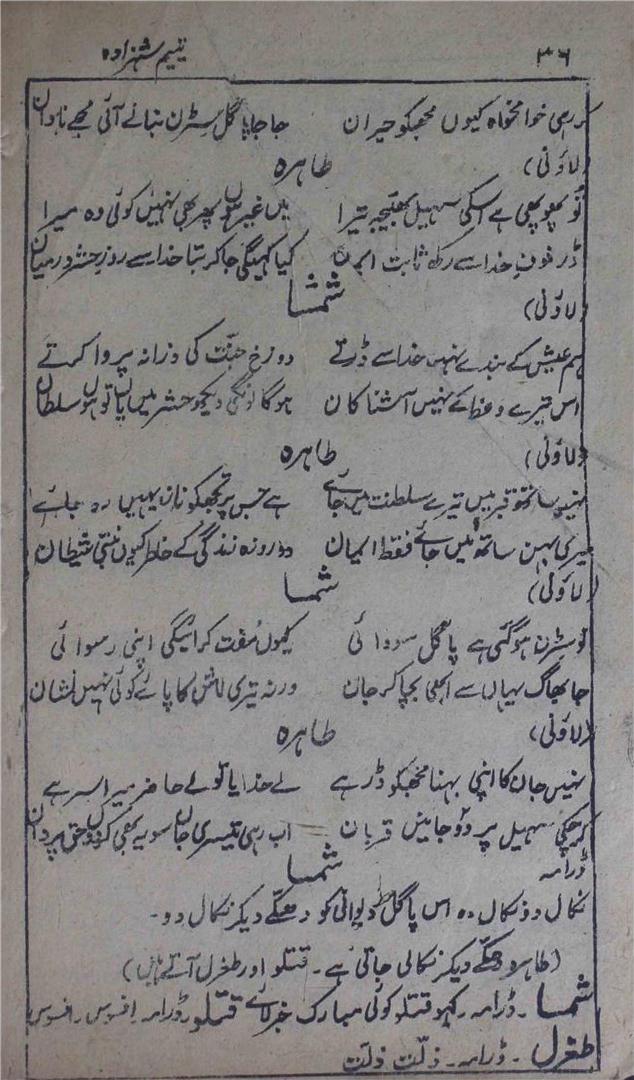 ۳۶ یتیم شہزادہ
کر رہی خوامخواہ کیوں مجھکو حیران جا جا پاگل سٹرن بنانے آئی مجھے نادان
(لاؤنی) طاہرہ
تو پھوپھی ہے اسکی سہیل بھتیجہ تیرا میں غیر ہوں پھر بھی نہیں کوئی وہ میرا
ڈر خوف خدا سے رکھ ثابت ایمان کیا کہیگی جا کر بتا خدا سے روز حشر درمیان
(لاؤنی) شمسا
ہم عیش کے بندے نہیں خدا سے ڈرتے دوزخ جنّت کی ذرا نہ پروا کرتے
اس تیرے وعظ کے نہیں آشنا کان ہوگا لونگی دیکھ حشر میں یاں تو ہوں سلطان
(لاؤنی) طاہرہ
نہیں ساتھ قبر میں تیرے سلطنت جائے ہے جس پر تجھکو نازیہیں رہ جائے
میری بہن ساتھ میں جائے فقط ایمان دو روزہ زندگی کے خاطر کیوں بنتی شیطان
(لاؤنی) شمسا
تو سٹرن ہوگئی ہے پاگل سودائی کیوں مفت کرائیگی اپنی رسوائی
جا بھاگ یہاں سے ابھی بچا کر جان ورنہ تیری لاش کا پائے کوئی نہیں نشان
(لاؤنی) طاہرہ
نہیں جان کا اپنی بہنا مجھکو ڈر ہے لے خدایا تولے حاضر میرا سر ہے
کر چکی سہیل پر دو جانیں قربان اب رہی تیسری جان سو یہ بھی کردوں حق پر دان
ڈرامہ شمسا
نکال دو نکال دو اس پاگل دیوانی کو دھکے دیکر نکال دو۔
(طاہرہ دھکے دیکر نکالی جاتی ہے۔ قتلو اور طغرل آتے ہیں)
شمسا ۔ ڈرامہ ۔ کہو قتلو کوئی مبارک خبر لائے قتلو ۔ ڈرامہ افسوس ۔ افسوس
طغرل ۔ ڈرامہ ۔ ذلّت ذلّت